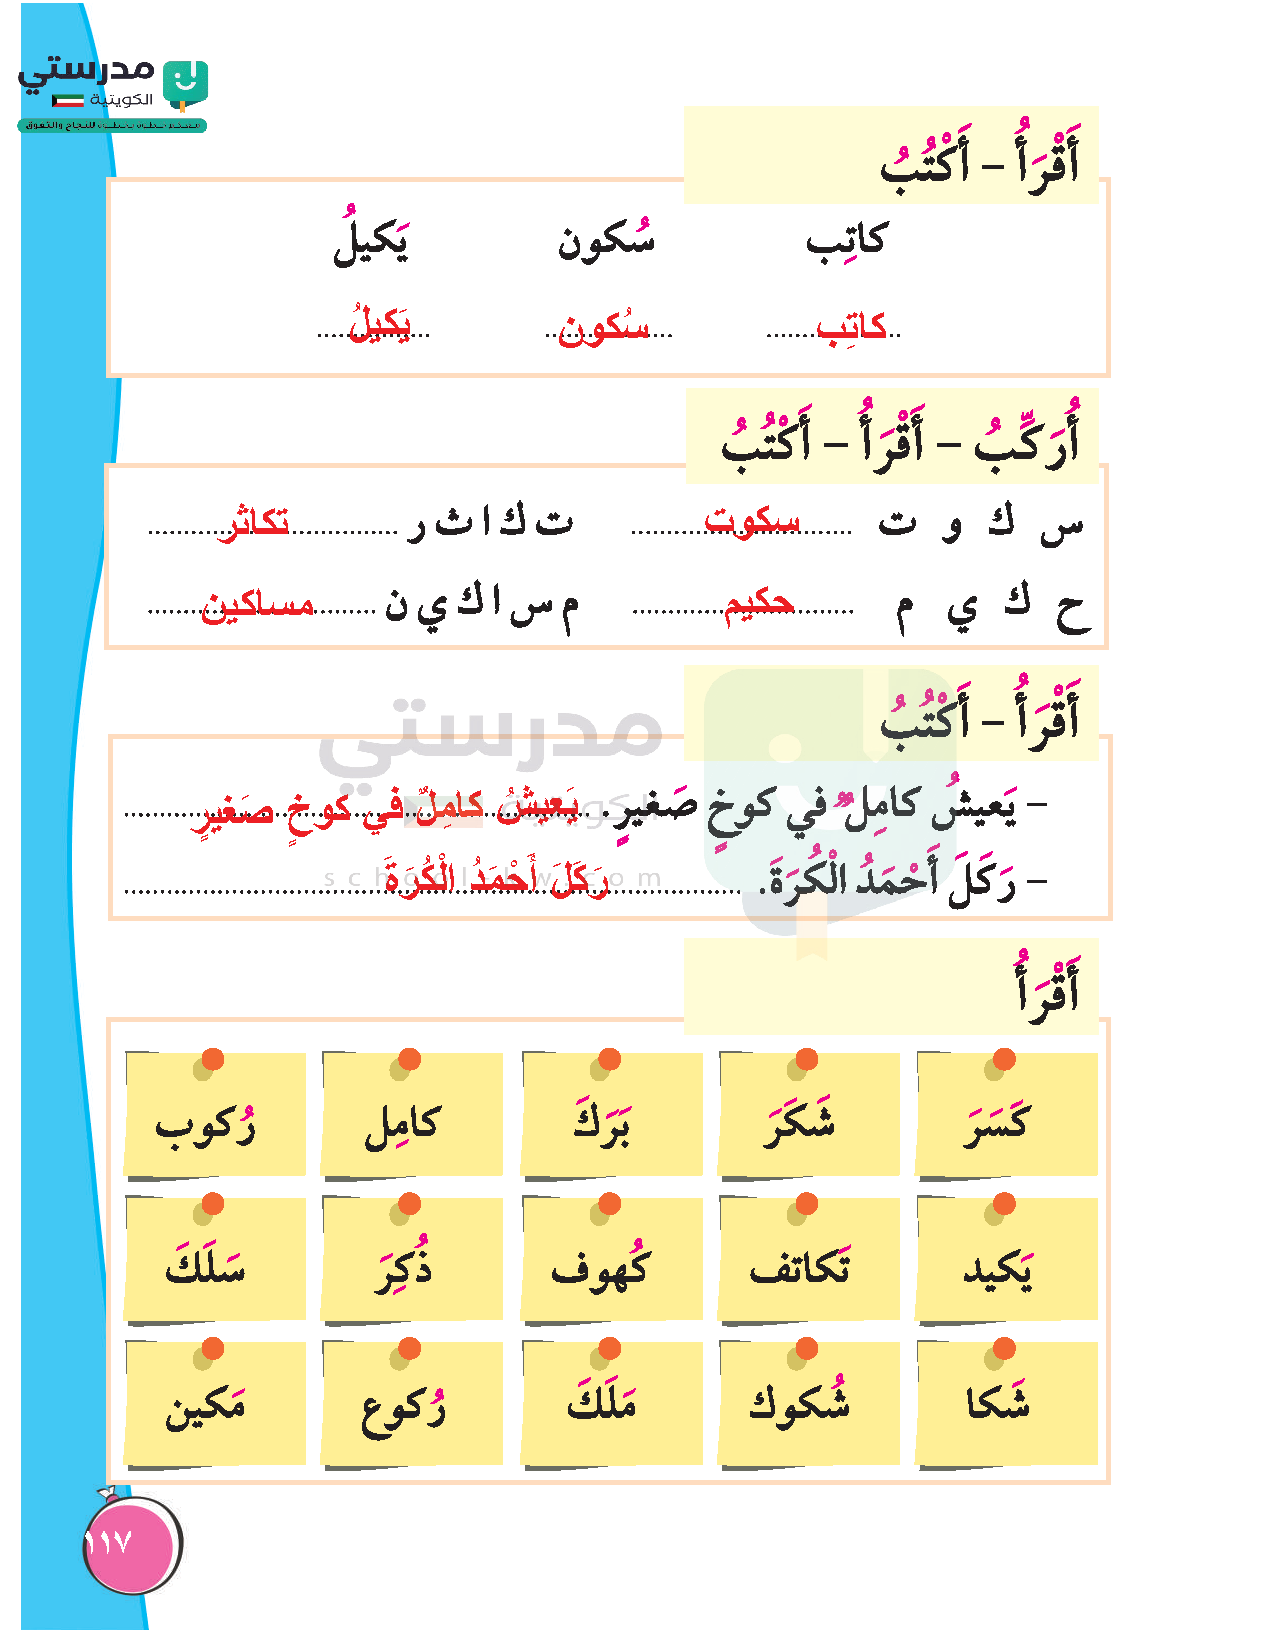 مدرستي
الكويتية
أَقْرَأُ – أَكْتُبُ
كاتِب سُكون يَكيلُ
كاتِب سُكون يَكيلُ
أُرَكِّبُ – أَقْرَأُ – أَكْتُبُ
س ك و ت سكوت ت ك ا ث ر تكاثر
ح ك ي م حكيم م س ا ك ي ن مساكين
أَقْرَأُ – أَكْتُبُ
– يَعيشُ كامِلٌ في كوخٍ صَغيرٍ. يَعيشُ كامِلٌ في كوخٍ صَغيرٍ
– رَكَلَ أَحْمَدُ الْكُرَةَ. رَكَلَ أَحْمَدُ الْكُرَةَ
مدرستي
الكويتية
أَقْرَأُ
كَسَرَ شَكَرَ بَرَكَ كامِل رُكوب
يَكيد تَكاتف كُهوف ذُكِرَ سَلَكَ
شَكا شُكوك مَلَكَ رُكوع مَكين
١١٧